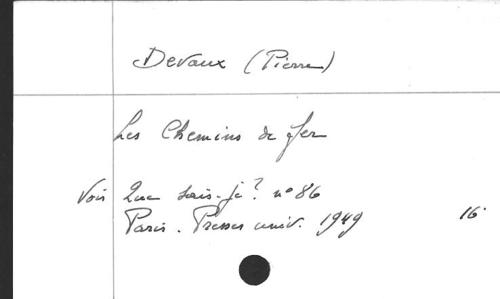 Devaux (Pierre)
Les Chemins de fer
Voir Que sais-je? n° 86
Paris. Presses univ. 1949 16°